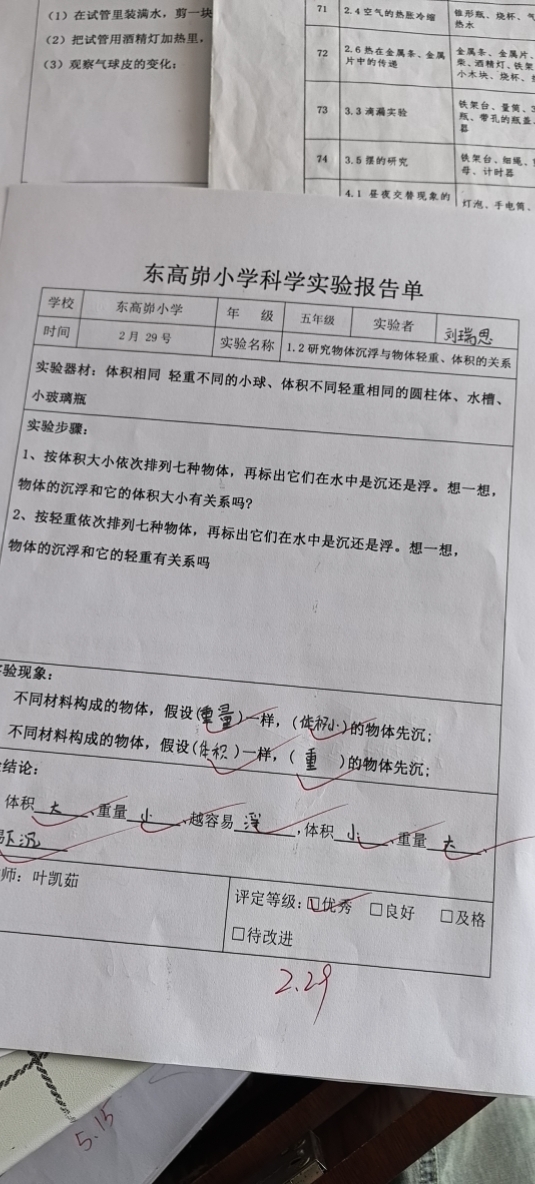 (1)在试管里装满水，剪一块
(2)把试管用酒精灯加热里，
(3)观察气球皮的变化：
71 2.4 空气的热胀冷缩 锥形瓶、烧杯、气
热水
72 2.6 热在金属条、金属片中的传递 金属条、金属片、
柴、酒精灯、铁架
小木块、烧杯、
73 3.3 滴漏实验 铁架台、量筒、3
瓶、带孔的瓶盖、
器
74 3.5 摆的研究 铁架台、细绳、
母、计时器
4.1 昼夜交替现象的 灯泡、手电筒、
东高峁小学科学实验报告单
学校 东高峁小学 年 级 五年级 实验者 刘瑞思
时间 2月29号 实验名称 1.2 研究物体沉浮与物体轻重、体积的关系
实验器材：体积相同 轻重不同的小球、体积不同轻重相同的圆柱体、水槽、
小玻璃瓶
实验步骤：
1、按体积大小依次排列七种物体，再标出它们在水中是沉还是浮。想一想，
物体的沉浮和它的体积大小有关系吗？
2、按轻重依次排列七种物体，再标出它们在水中是沉还是浮。想一想，
物体的沉浮和它的轻重有关系吗
验现象：
不同材料构成的物体，假设(重量)一样，(体积小)的物体先沉；
不同材料构成的物体，假设(体积)一样，( 重 )的物体先沉；
结论：
体积 大 、重量 小 、越容易 浮 ，体积 小 、重量 大 、
易下沉
师：叶凯茹
评定等级：☐优秀 ☐良好 ☐及格
☐待改进
2.29
5.15